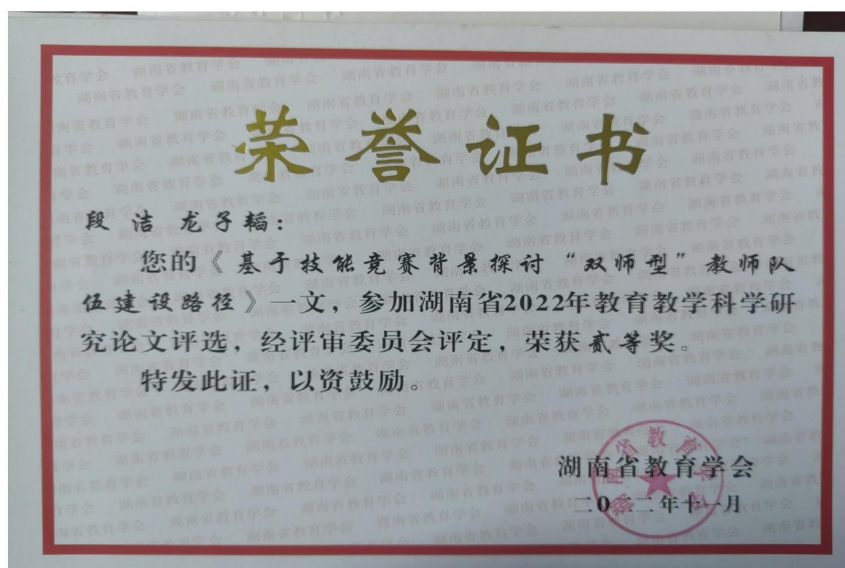 荣誉证书
段洁 龙子韬：
您的《基于技能竞赛背景探讨“双师型”教师队
伍建设路径》一文，参加湖南省2022年教育教学科学研
究论文评选，经评审委员会评定，荣获贰等奖。
特发此证，以资鼓励。
湖南省教育学会
二0二二年十一月